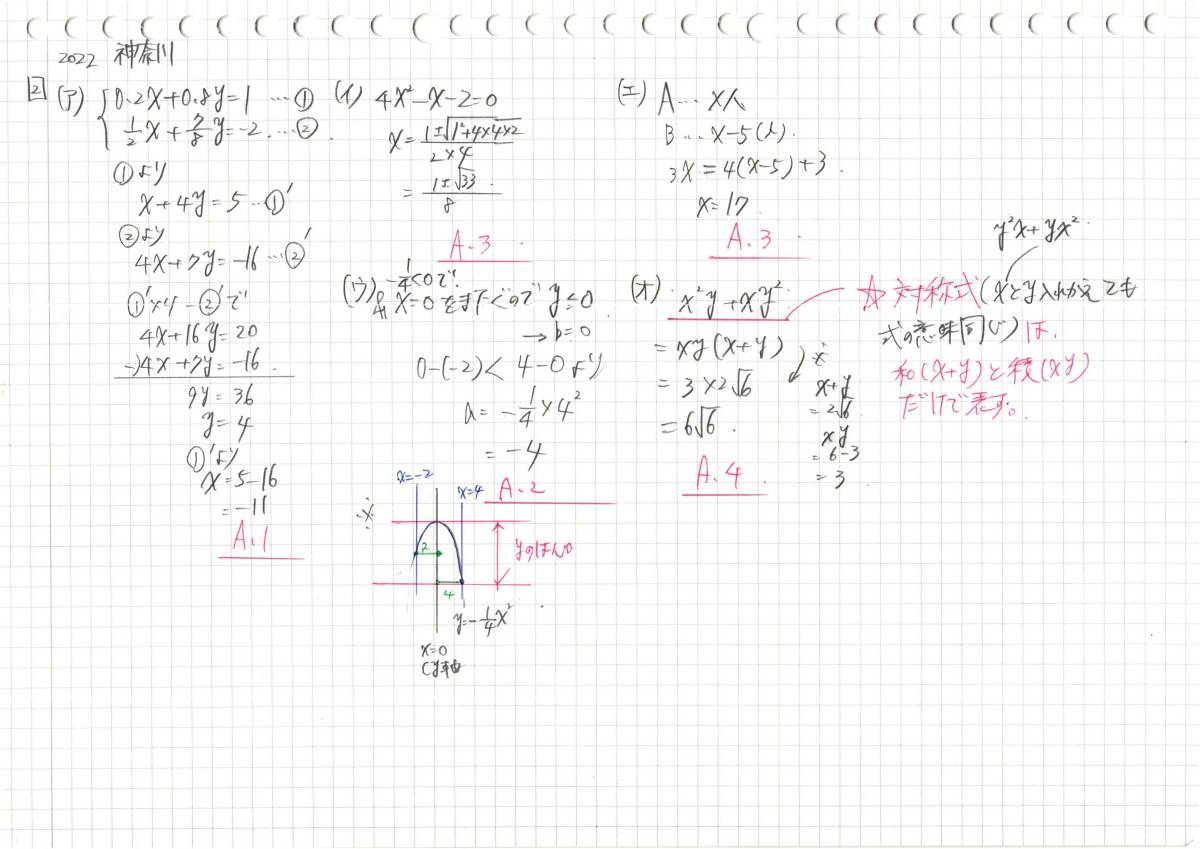 2022 神奈川
2
(ア) 0.2x+0.8y=1 …①
1/2x+7/8y=-2 …②
①より
x+4y=5…①'
②より
4x+7y=-16…②'
①'×4-②'で
4x+16y=20
-)4x+7y=-16
9y=36
y=4
①'より
x=5-16
=-11
A.1
(イ) 4x²-x-2=0
x=1±√1²+4×4×2/2×4
=1±√33/8
A.3
(ウ) -1/4<0で
x=0をまたぐので y≦0
→b=0
0-(-2)<4-0より
a=-1/4×4²
=-4
A.2
x=-2
x=4
※
2
4
yのはんい
y=-1/4x²
x=0
(y軸
(エ) A…x人
B…x-5(人)
3x=4(x-5)+3
x=17
A.3
(オ) x²y+xy²
=xy(x+y)
=3×2√6
=6√6
A.4
※
x+y
=2√6
xy
=6-3
=3
y²x+yx²
☆対称式(xとy入れかえても
式の意味同じ)は、
和(x+y)と積(xy)
だけで表す。